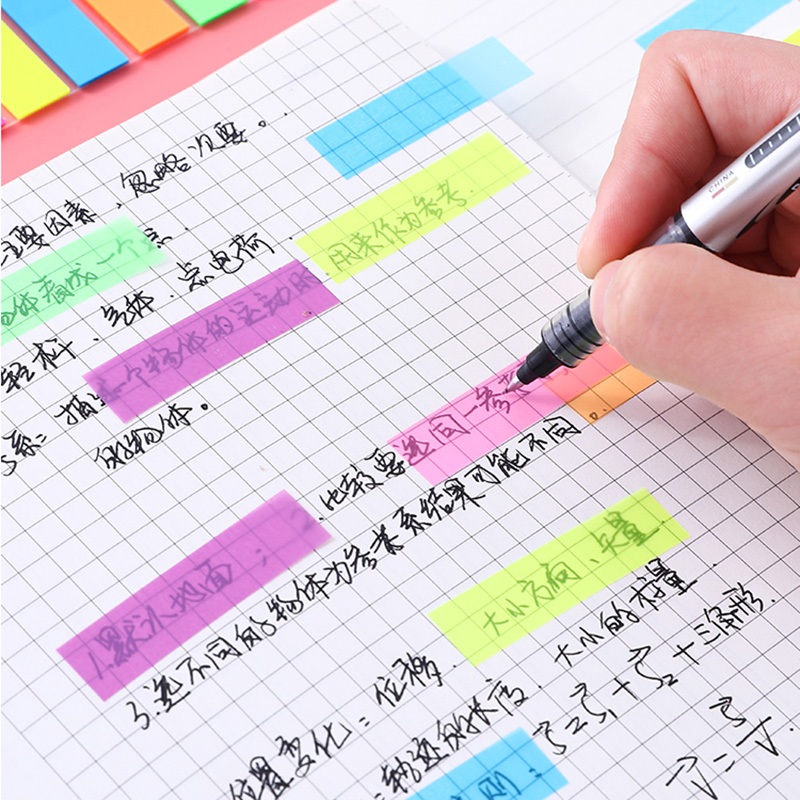 主要因素,忽略次要。
物体看成一个点.
轻杆、气体、点电荷 用来作为参考.
系: 描述一个物体的运动时,
的物体。
比较要选同一参考
1.默认地面;
3.选不同的物体为参考系结果可能不同.
大小方向、矢量.
位置变化=位移. 大小的标量.
=轨迹的长度.
则:
CHINA